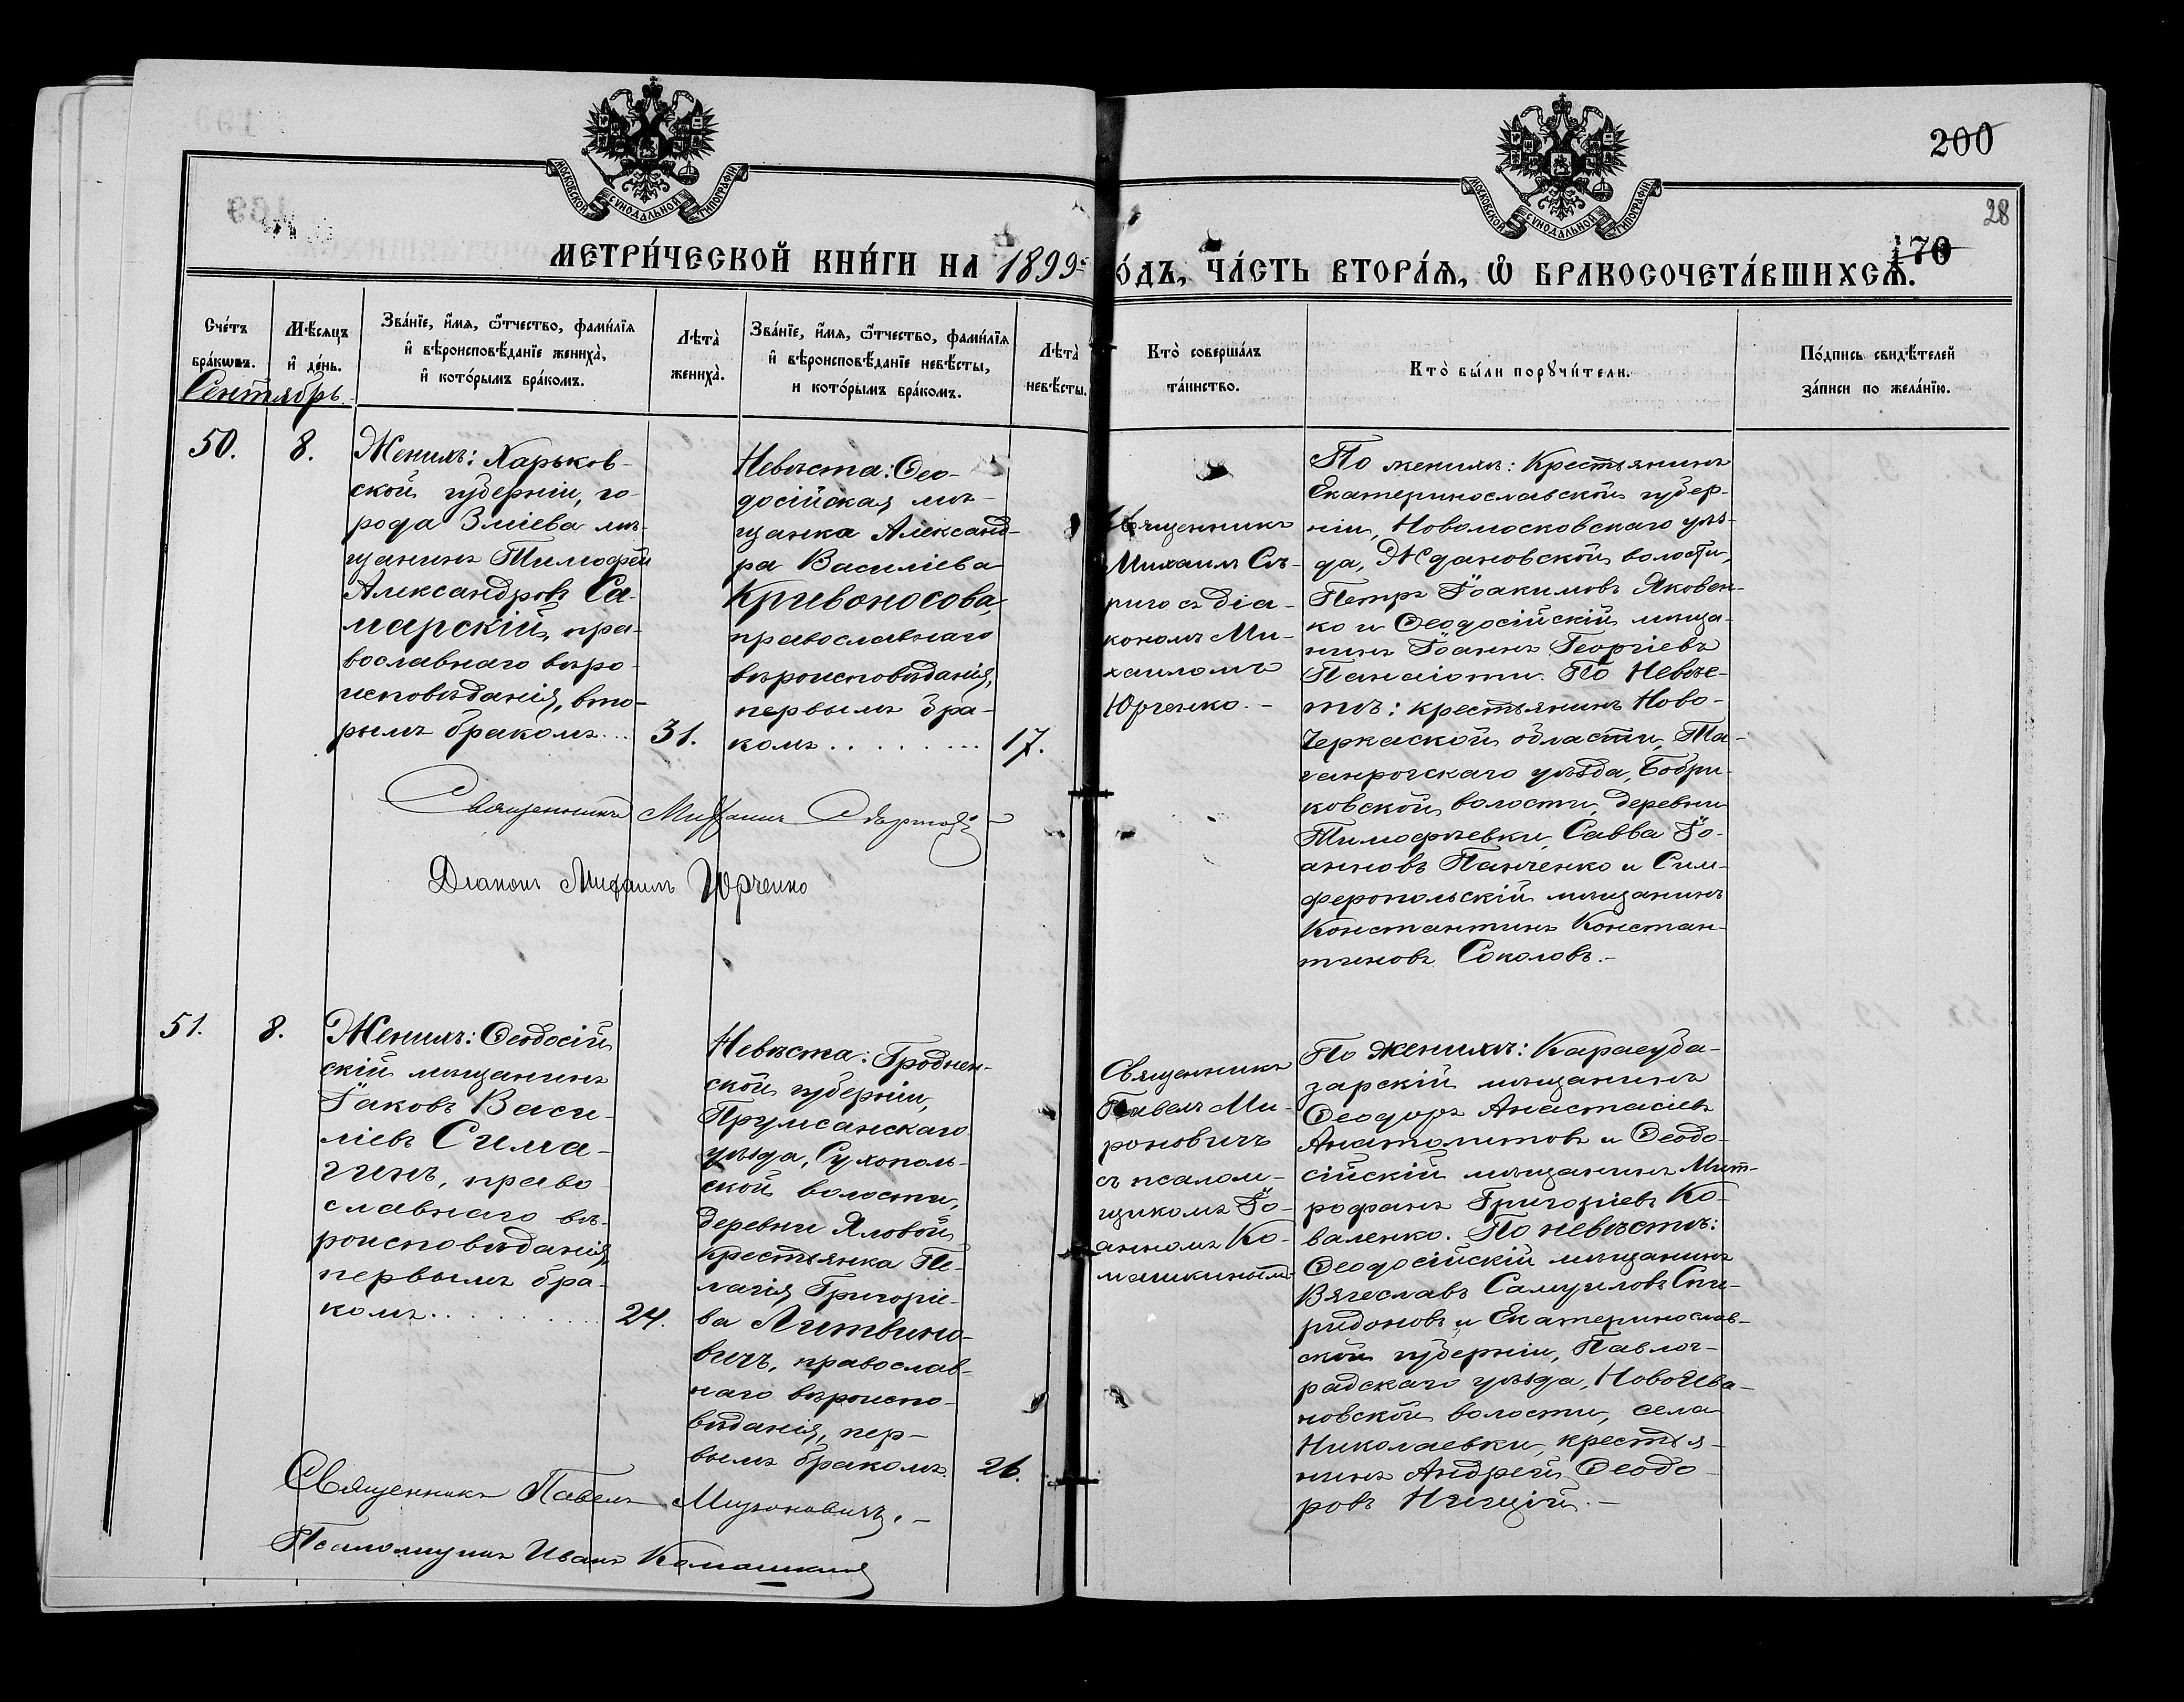 200
28
170
МОСКОВСКОЙ СУНОДАЛЬНОЙ ТИПОГРАФІИ
МОСКОВСКОЙ СУНОДАЛЬНОЙ ТИПОГРАФІИ
МЕТРИ́ЧЕСКОЙ КНИ́ГИ НА 1899 го́дъ, ЧА́СТЬ ВТОРА́Ѧ, Ѽ БРАКОСОЧЕТА́ВШИХСѦ.
Сче́тъ
бра́кѡвъ.
Мѣ́сяцъ
и҆ де́нь.
Зва́нїе, и҆́мя, ѻ҆́тчество, фами́лїя
и҆ вѣроисповѣ́данїе жениха̀,
и҆ кото́рымъ бра́комъ.
Лѣта̀
жениха̀.
Зва́нїе, и҆́мя, ѻ҆́тчество, фами́лїя
и҆ вѣроисповѣ́данїе невѣ́сты,
и кото́рымъ бра́комъ.
Лѣта̀
невѣ́сты.
Кто̀ соверша́лъ
та́инство.
Кто̀ бы́ли порꙋчи́тели.
По́дпись свидѣ́телей
за́писи по жела́нїю.
Сентябрь.
50.
8.
Женихъ: Харьков-
ской губерніи, го-
рода Зміева мѣ-
щанинъ Тимофей
Александровъ Са-
марскій, пра-
вославнаго вѣро-
исповѣданія, вто-
рымъ бракомъ...
31.
Невѣста: Ѳео-
досійская мѣ-
щанка Александ-
ра Василіева
Кривоносова,
православнаго
вѣроисповѣданія,
первымъ бра-
комъ.........
17.
Священникъ
Михаилъ Сѣ-
риго съ діа-
кономъ Ми-
хаиломъ
Юрченко.-
По женихѣ: Крестьянинъ
Екатеринославской губер-
ніи, Новомосковскаго уѣз-
да, Ждановской волости,
Петръ Іоакимовъ Яковен-
ко и Ѳеодосійскій мѣща-
нинъ Іоаннъ Георгіевъ
Панаіоти. По Невѣс-
тѣ: крестьянинъ Ново-
черкаской области, Та-
ганрогскаго уѣзда, Бобри-
ковской волости, деревни
Тимофѣевки, Савва Іо-
анновъ Панченко и Сим-
феропольскій мѣщанинъ
Константинъ Констан-
тиновъ Соколовъ.-
Священникъ Михаилъ
Діаконъ Михаилъ Юрченко
51.
8.
Женихъ: Ѳеодосій-
скій мѣщанинъ
Іаковъ Васи-
ліевъ Сима-
гинъ, право-
славнаго вѣ-
роисповѣданія,
первымъ бра-
комъ.........
24.
Невѣста: Гроднен-
ской губерніи,
Пружанскаго
уѣзда, Сухополь-
ской волости,
деревни Яловой
крестьянка Пе-
лагія Григоріе-
ва Литвино-
вичъ, православ-
наго вѣроиспо-
вѣданія, пер-
вымъ бракомъ.
26.
Священникъ
Павелъ Ми-
роновичъ
съ псалом-
щикомъ Іо-
анномъ Ко-
машкинымъ
По женихѣ: Карасуба-
зарскій мѣщанинъ
Ѳеодоръ Анастасіевъ
Анатолитовъ и Ѳеодо-
сійскій мѣщанинъ Мит-
рофанъ Григоріевъ Ко-
валенко. По невѣстѣ:
Ѳеодосійскій мѣщанинъ
Вячеславъ Самуиловъ Спи-
ридоновъ и Екатеринослав-
ской губерніи, Павлог-
радскаго уѣзда, Ново-Ива-
новской волости, села
Николаевки, крестья-
нинъ Андрей Ѳеодо-
ровъ Нищій.-
Священникъ Павелъ Мироновичъ.-
Псаломщикъ Иванъ Комашкинъ